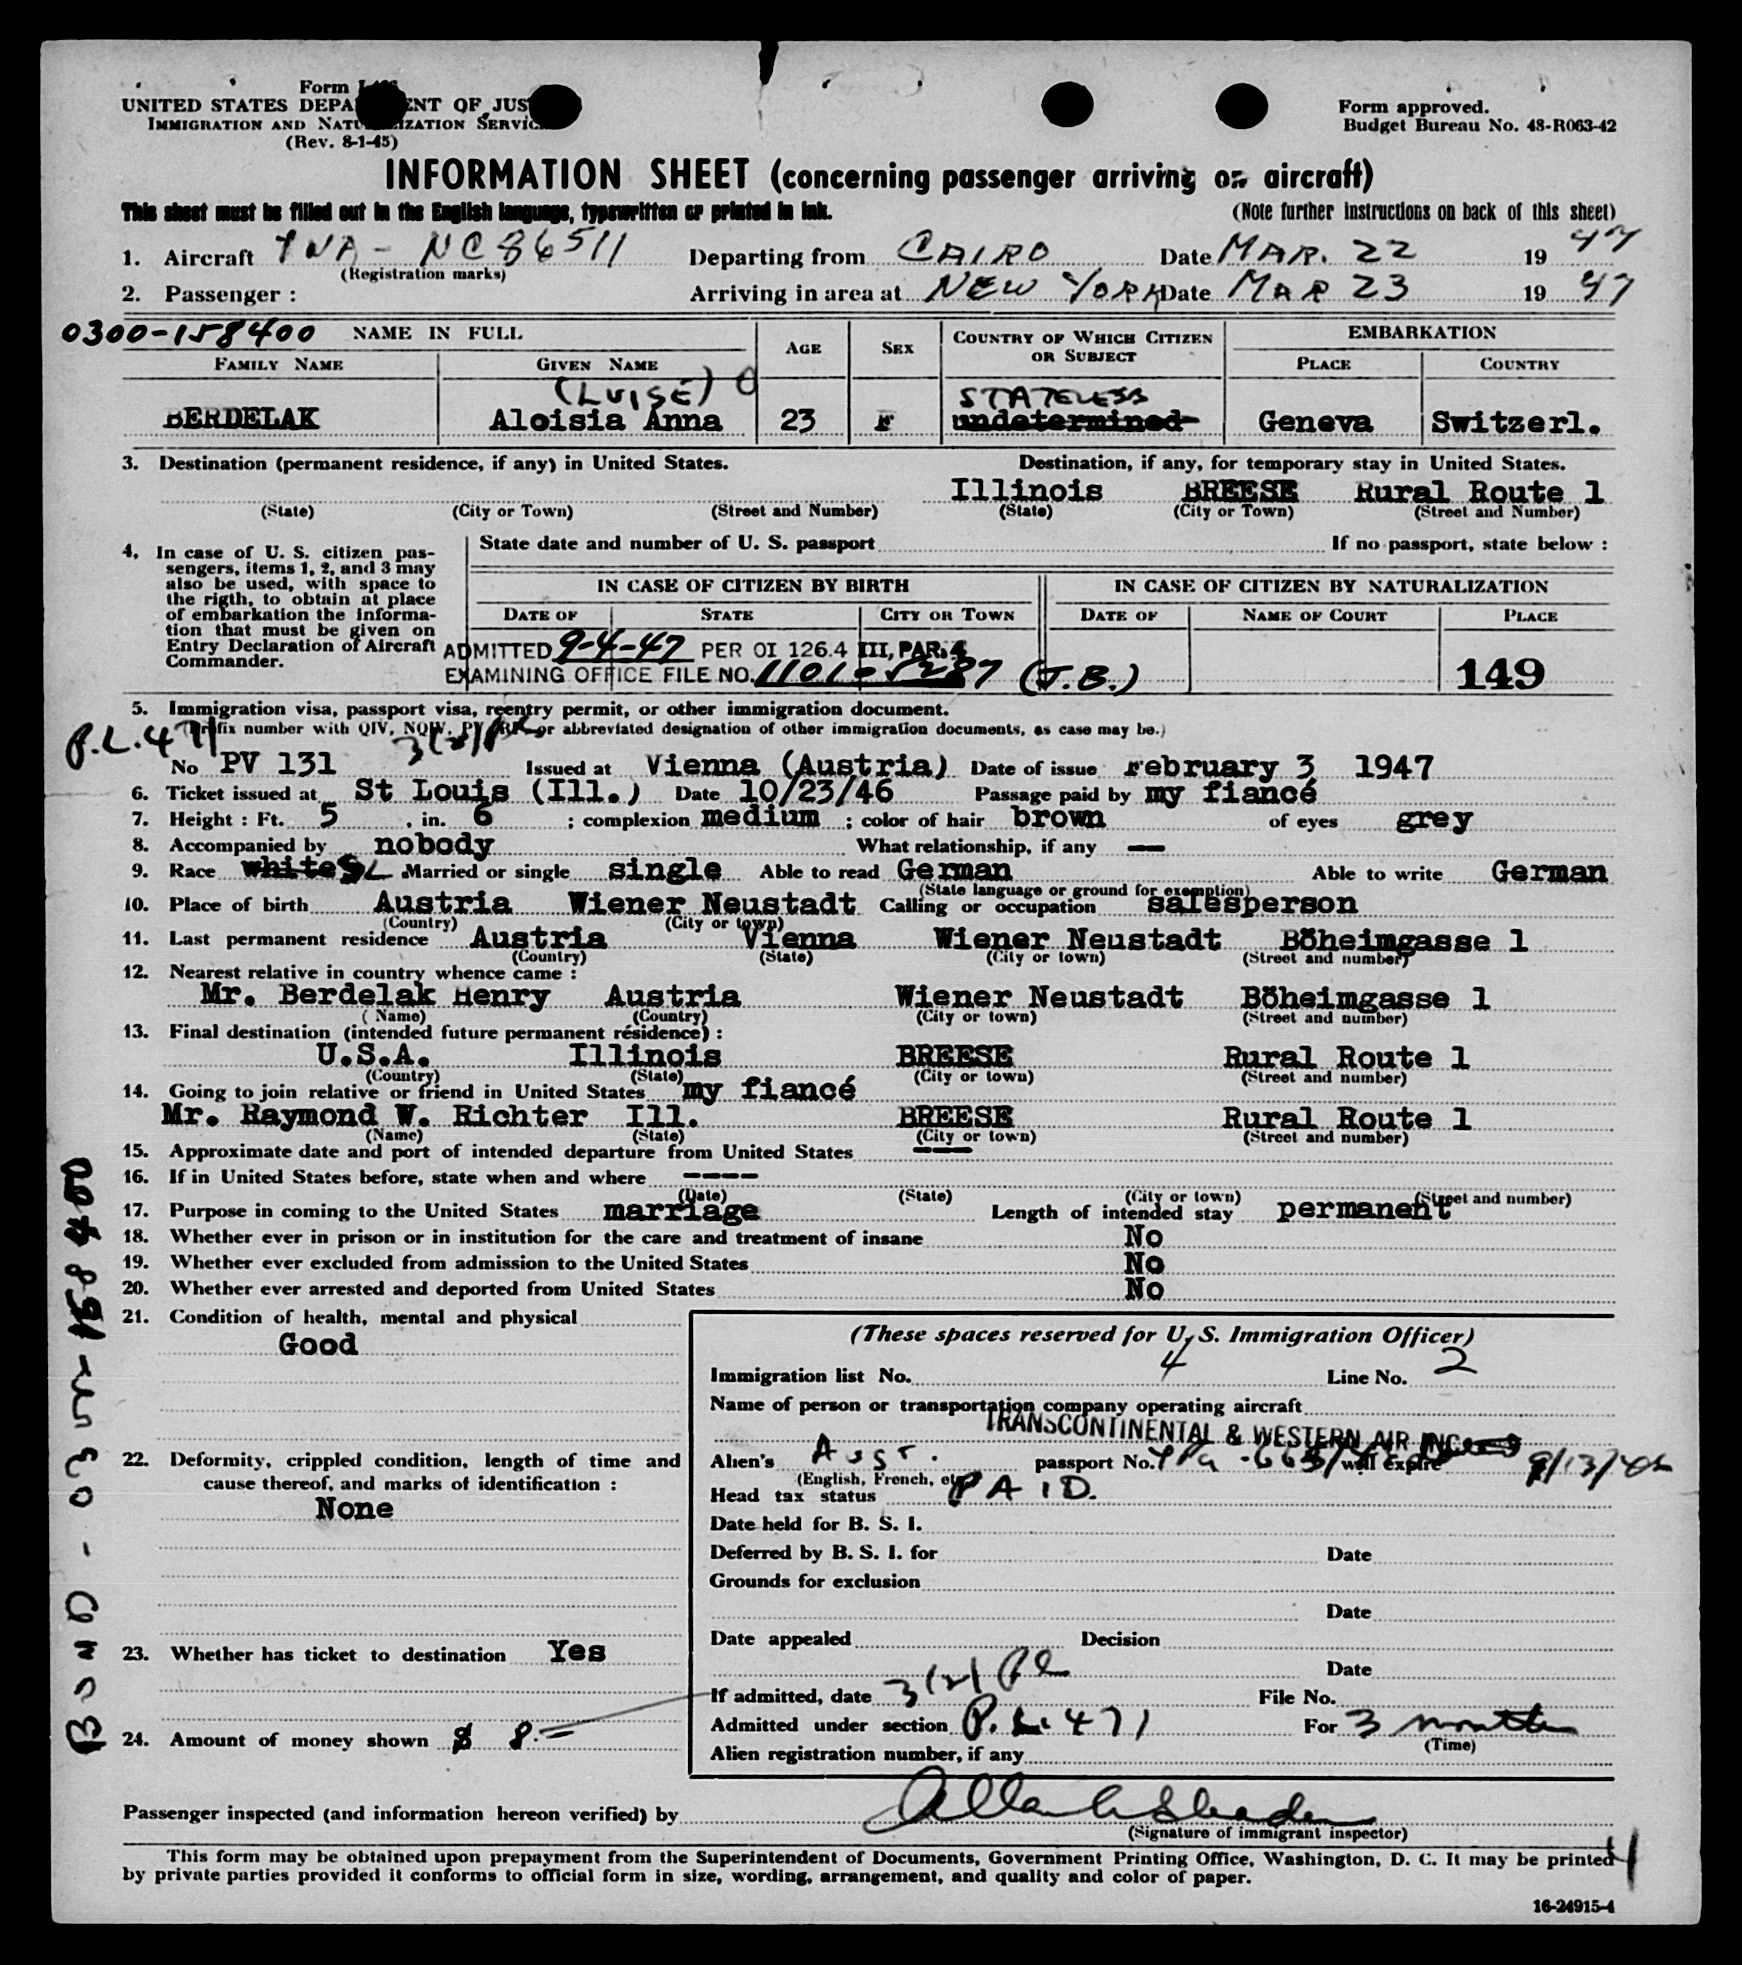 Form
UNITED STATES DEPARTMENT OF JUSTICE
IMMIGRATION AND NATURALIZATION SERVICE
(Rev. 8-1-45)
Form approved.
Budget Bureau No. 48-R063-42
INFORMATION SHEET (concerning passenger arriving on aircraft)
This sheet must be filled out in the English language, typewritten or printed in ink. (Note further instructions on back of this sheet)
1. Aircraft TWA - NC86511 Departing from CAIRO Date MAR. 22 1947
(Registration marks)
2. Passenger : Arriving in area at NEW YORK Date MAR 23 1947
0300-158400 NAME IN FULL AGE SEX COUNTRY OF WHICH CITIZEN OR SUBJECT EMBARKATION
FAMILY NAME GIVEN NAME PLACE COUNTRY
(LUISE) STATELESS
BERDELAK Aloisia Anna 23 F undetermined Geneva Switzerl.
3. Destination (permanent residence, if any) in United States. Destination, if any, for temporary stay in United States.
Illinois BREESE Rural Route 1
(State) (City or Town) (Street and Number) (State) (City or Town) (Street and Number)
4. In case of U. S. citizen pas-
sengers, items 1, 2, and 3 may
also be used, with space to
the rigth, to obtain at place
of embarkation the informa-
tion that must be given on
Entry Declaration of Aircraft
Commander.
State date and number of U. S. passport If no passport, state below :
IN CASE OF CITIZEN BY BIRTH IN CASE OF CITIZEN BY NATURALIZATION
DATE OF STATE CITY OR TOWN DATE OF NAME OF COURT PLACE
ADMITTED 9-4-47 PER OI 126.4 III, PAR. 4
EXAMINING OFFICE FILE NO. 1101-5287 (J.B.) 149
5. Immigration visa, passport visa, reentry permit, or other immigration document.
(Prefix number with QIV, NQIV, PV, RP, or abbreviated designation of other immigration documents, as case may be.)
P.L. 471 3(2)
No PV 131 Issued at Vienna (Austria) Date of issue February 3 1947
6. Ticket issued at St Louis (Ill.) Date 10/23/46 Passage paid by my fiancé
7. Height : Ft. 5 , in. 6 ; complexion medium ; color of hair brown of eyes grey
8. Accompanied by nobody What relationship, if any —
9. Race white SL Married or single single Able to read German Able to write German
(State language or ground for exemption)
10. Place of birth Austria Wiener Neustadt Calling or occupation salesperson
(Country) (City or town)
11. Last permanent residence Austria Vienna Wiener Neustadt Böheimgasse 1
(Country) (State) (City or town) (Street and number)
12. Nearest relative in country whence came :
Mr. Berdelak Henry Austria Wiener Neustadt Böheimgasse 1
(Name) (Country) (City or town) (Street and number)
13. Final destination (intended future permanent résidence) :
U.S.A. Illinois BREESE Rural Route 1
(Country) (State) (City or town) (Street and number)
14. Going to join relative or friend in United States my fiancé
Mr. Raymond W. Richter Ill. BREESE Rural Route 1
(Name) (State) (City or town) (Street and number)
15. Approximate date and port of intended departure from United States ---
16. If in United States before, state when and where ----
(Date) (State) (City or town) (Street and number)
17. Purpose in coming to the United States marriage Length of intended stay permanent
18. Whether ever in prison or in institution for the care and treatment of insane No
19. Whether ever excluded from admission to the United States No
20. Whether ever arrested and deported from United States No
21. Condition of health, mental and physical
Good
22. Deformity, crippled condition, length of time and
cause thereof, and marks of identification :
None
23. Whether has ticket to destination Yes
24. Amount of money shown $ 8.=
0300-158400
(These spaces reserved for U. S. Immigration Officer)
Immigration list No. 4 Line No. 2
Name of person or transportation company operating aircraft
TRANSCONTINENTAL & WESTERN AIR INC
Alien's Aust. passport No. will expire
(English, French, etc.)
Head tax status PAID.
Date held for B. S. I.
Deferred by B. S. I. for Date
Grounds for exclusion
Date
Date appealed Decision
Date
If admitted, date 3(2) File No.
Admitted under section P.L. 471 For 3 months
(Time)
Alien registration number, if any
Passenger inspected (and information hereon verified) by
(Signature of immigrant inspector)
This form may be obtained upon prepayment from the Superintendent of Documents, Government Printing Office, Washington, D. C. It may be printed
by private parties provided it conforms to official form in size, wording, arrangement, and quality and color of paper.
16-24915-4